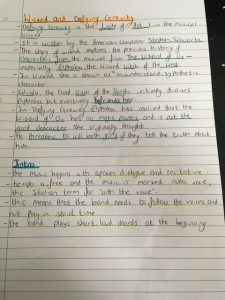 Wicked and Defying Gravity
- Defying Gravity is the finale of Act 1 in the musical Wicked
- It is written by the American composer Stephen Schwartz
- The story of wicked explores the previous history of
characters from the musical film The Wizard of Oz -
especially Elphaba, the Wicked Witch of the West
- In Wicked she is shown as misunderstood, sympathetic
character
- Galinda, the Good Witch of the North initially dislikes
Elphaba but eventually befriends her.
- In Defying Gravity, Elphaba has realised that the
Wizard of Oz has no magic powers and is not the
good character she originally thought
- He threatens to kill both girls if they tell the truth about
him
Intro
- the music begins with spoken dialogue and recitative.
- tempo is free and the music is marked colla voce,
the Italian term for 'with the voice'.
- this means that the band needs to follow the voices and
not play in strict time
- the band plays short, loud chords at the beginning